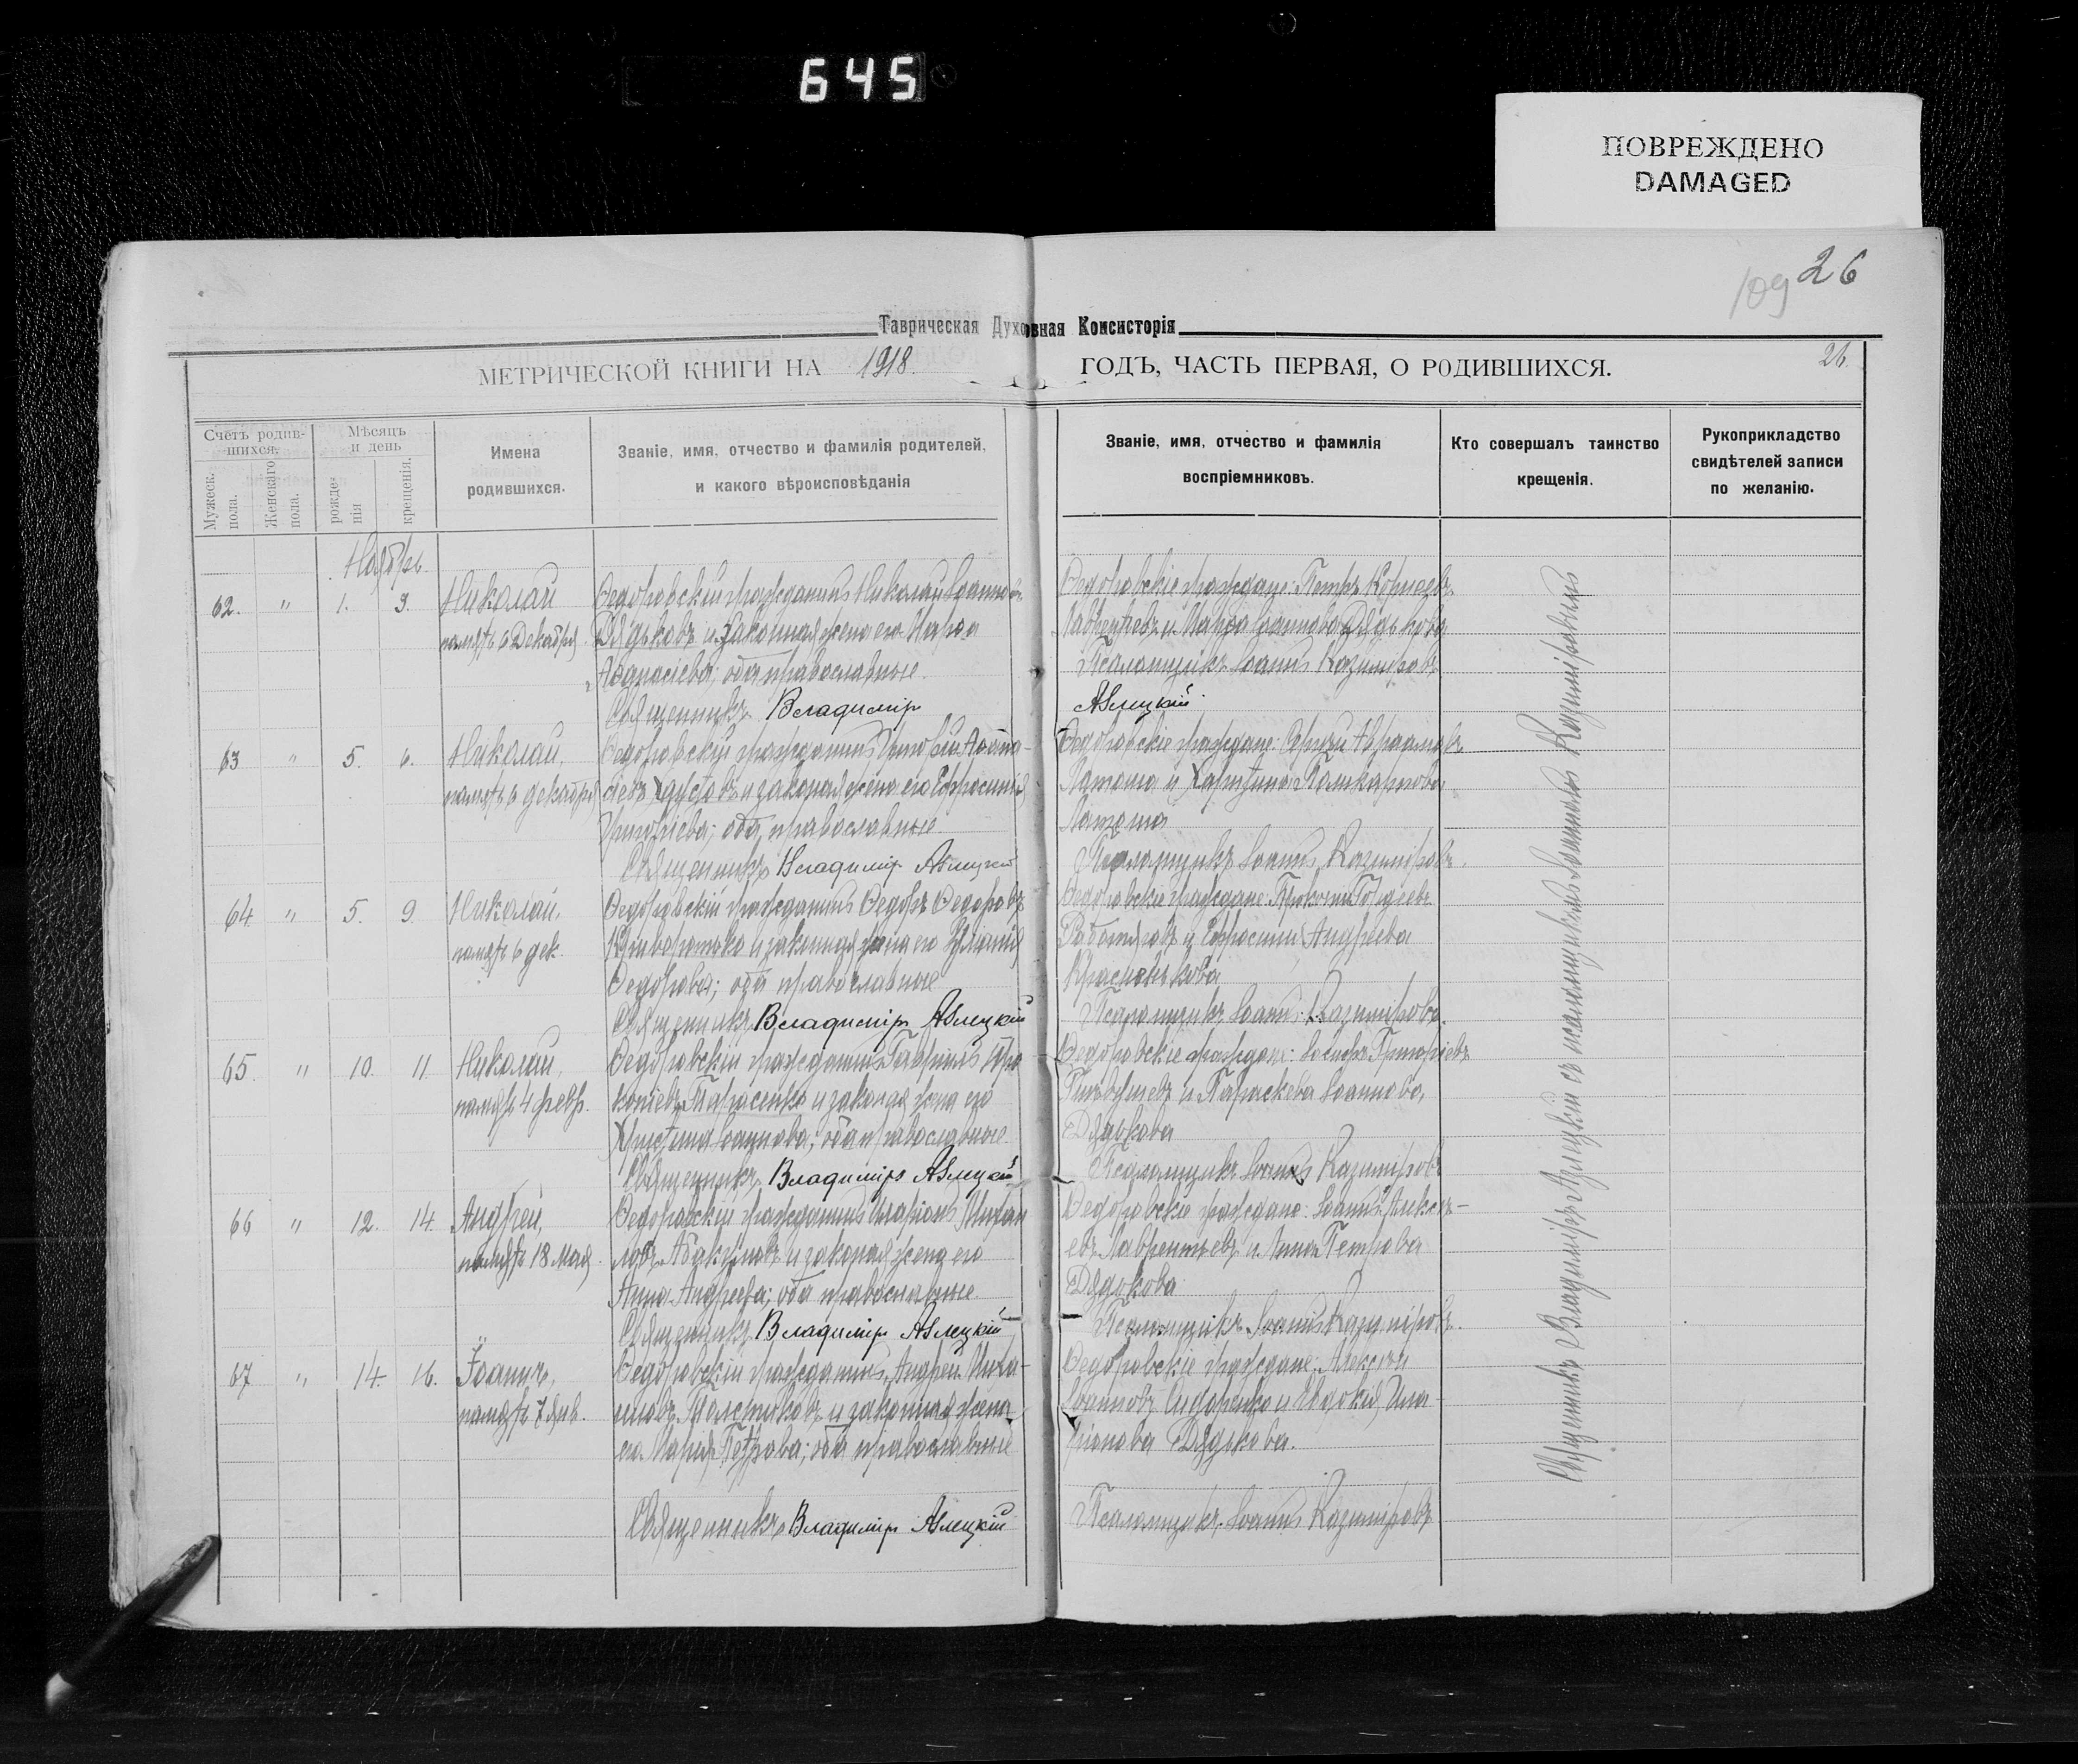 645
ПОВРЕЖДЕНО
DAMAGED
109 26
Таврическая Духовная Консисторія
МЕТРИЧЕСКОЙ КНИГИ НА 1918. ГОДЪ, ЧАСТЬ ПЕРВАЯ, О РОДИВШИХСЯ.
26.
Счетъ родив-
шихся.
Мужеск. пола.
Женскаго пола.
Мѣсяцъ
и день
рожде-
нія
крещенія.
Имена
родившихся.
Званіе, имя, отчество и фамилія родителей,
и какого вѣроисповѣданія
Званіе, имя, отчество и фамилія
воспріемниковъ.
Кто совершалъ таинство
крещенія.
Рукоприкладство
свидѣтелей записи
по желанію.
Ноябрь
62. " 1. 9. Николай
память 6 Декабря
Ѳедоровскій гражданинъ Николай Іоанновъ
Дядьковъ и законная жена его Марѳа
Аѳанасіева; оба православные.
Священникъ Владимір
Ѳедоровскіе граждане: Петръ
Лаврентіевъ и Марѳа Іоаннова Дядькова
Псаломщикъ Іоаннъ Казиміровъ
Аблецкій
63 " 5. 6. Николай,
память 6 декабря
Ѳедоровскій гражданинъ
и законая жена его Ефросинія
Григоріева; оба православные.
Священникъ Владимір Аблецкій
Ѳедоровскіе граждане: Сергѣй
и Поликарпова
Псаломщикъ Іоаннъ Казиміровъ.
64. " 5. 9. Николай,
память 6 дек.
Ѳедоровскій гражданинъ Ѳедоръ Ѳедоровъ
и законная жена его
Ѳедорова; оба православные
Священникъ Владимір Аблецкій
Ѳедоровскіе граждане: Прокопій
и Ефросинія Андреева
Псаломщикъ Іоаннъ Казиміровъ.
65. " 10. 11. Николай,
память 4 февр.
Ѳедоровскій гражданинъ Гавріилъ Про-
копіевъ Тарасенко и законая жена его
Христина Іоаннова; оба православные.
Священникъ Владимір Аблецкій
Ѳедоровскіе граждане: Іосифъ Григоріевъ
и Параскева Іоаннова,
Дядькова
Псаломщикъ Іоаннъ Казиміровъ
66 " 12. 14. Андрей,
память 18 Мая.
Ѳедоровскій гражданинъ Иларіонъ Михаи
ловъ Абакумовъ и законая жена его
Анна Андреева; оба православные
Священникъ Владимір Аблецкій
Ѳедоровскіе граждане: Іоаннъ Алексѣ-
евъ Лаврентьевъ и Анна Петрова
Дядькова
Псаломщикъ Іоаннъ Казиміровъ.
67 " 14. 16. Іоаннъ,
память 7 янв.
Ѳедоровскій гражданинъ Андрей Миха-
иловъ Толстиковъ и законная жена
его Марія Петрова; оба православные
Священникъ Владимір Аблецкій
Ѳедоровскіе граждане: Алексѣй
Іоанновъ Сидоренко и Евдокія Ила-
ріонова Дядькова.
Псаломщикъ Іоаннъ Казиміровъ
Священникъ Владиміръ Аблецкій съ псаломщикомъ Іоанномъ Казиміровымъ